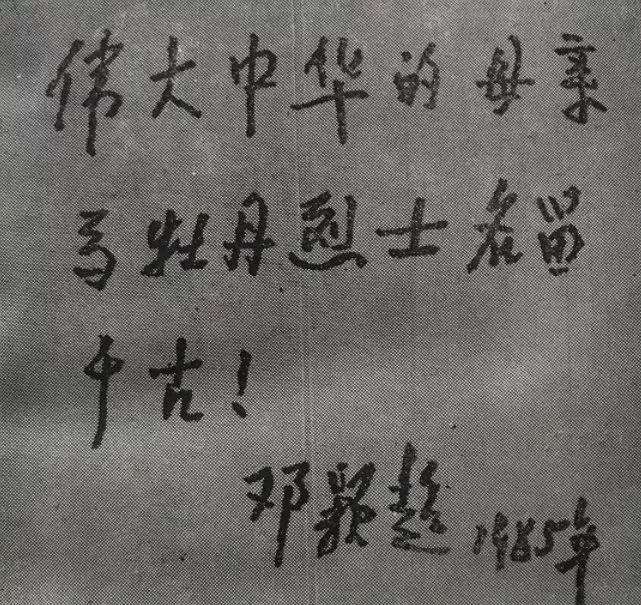 伟大中华的母亲
马牡丹烈士名留
千古！
邓颖超 1985年